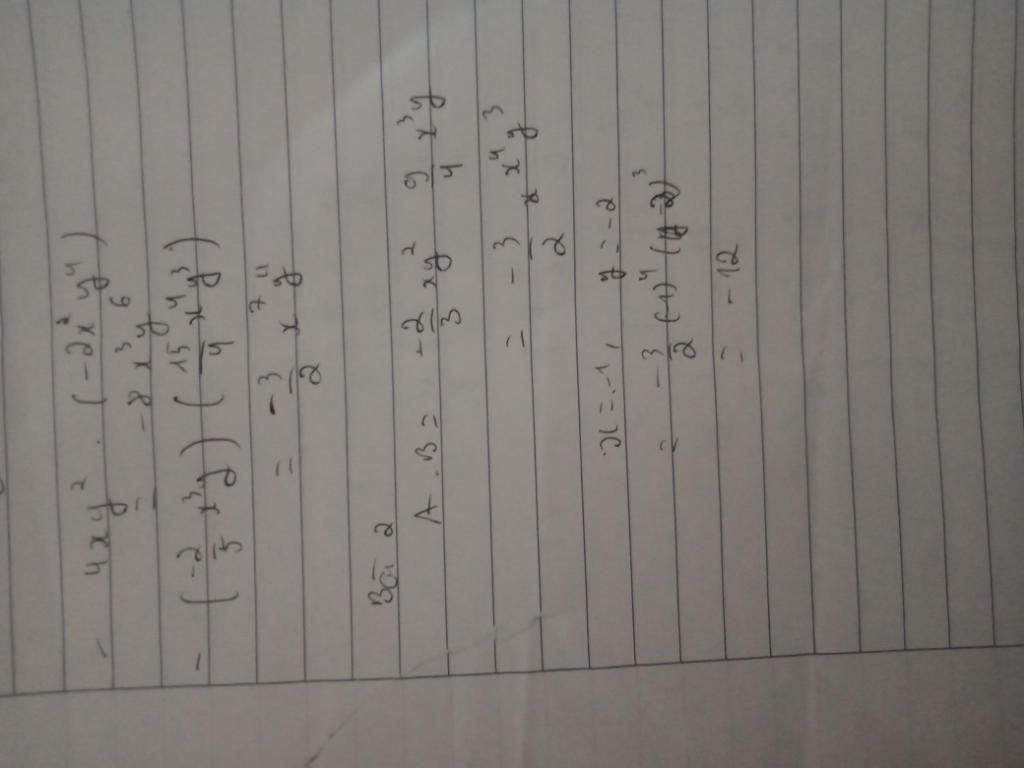 - 4xy² . (-2x²y⁴)
= -8x³y⁶
- (-2/5 x³y) (15/4 x⁴y³)
= -3/2 x⁷y⁴
Bài 2
A . B = -2/3 xy² 9/4 x³y
= -3/2 x x⁴y³
x = -1, y = -2
= -3/2 (-1)⁴ (-2)³
= -12